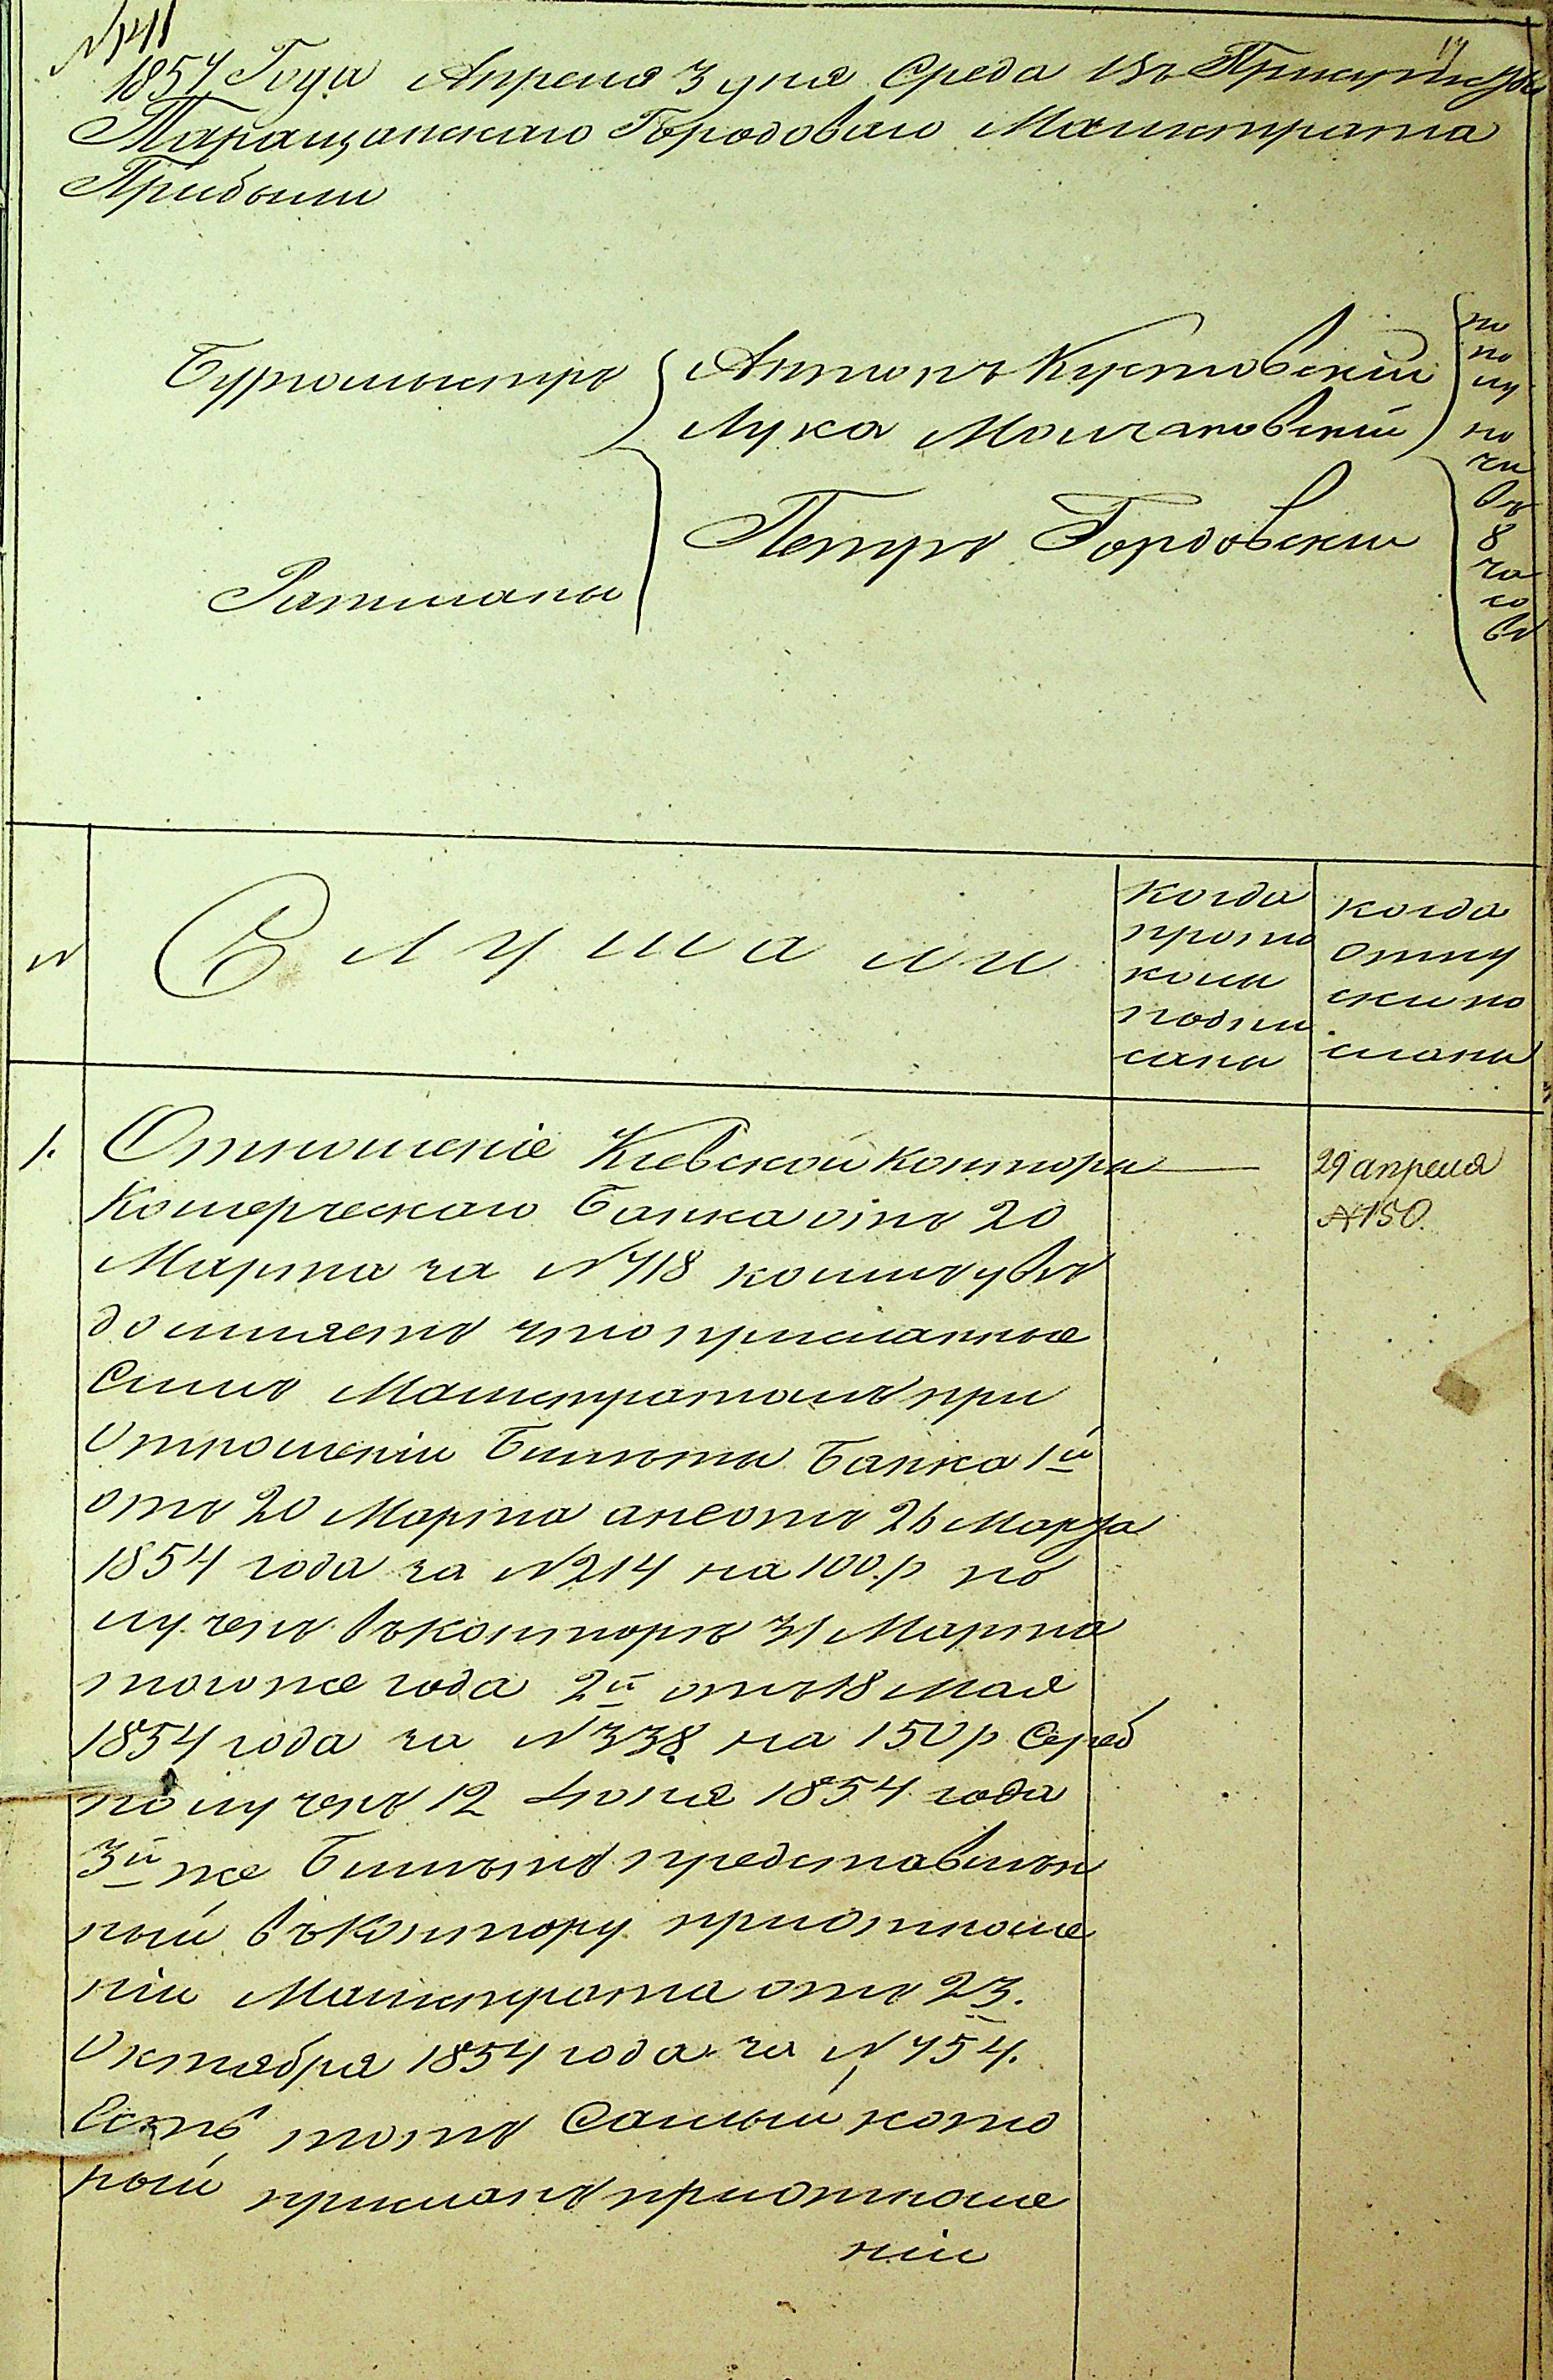 № 41
17
1857 Года Апреля 3 дня Среда Въ Присутствіе
Таращанскаго Городоваго Магистрата
Прибыли
Бургомистръ
Антонъ Кустовскій
Лука Молчановскій
Петръ Гордовскій
Ратманы
по
по
лу
но
чи
въ
8
ча
со
въ
№
Слушали
когда
прото
колы
подпи
саны
когда
отпу
ски по
сланы
1.
Отношеніе Кіевской Конторы
Комерческаго Банка отъ 20
Марта за № 718 коимъ увѣ
домляетъ что присланные
Симъ Магистратомъ при
Отношеніи Билеты Банка 1й
отъ 20 Марта а не отъ 26 Марта
1854 года за № 214 на 100.р. по
лученъ въ конторѣ 31 Марта
того же года 2й отъ 18 Мая
1854 года за № 338 на 150 р Сереб
полученъ 12 Іюня 1854 года
3й же Билетъ представлен
ный въ Контору при отноше
ніи Магистрата отъ 23.
Октября 1854 года за № 754.
Есть тотъ Самый кото
рый присланъ при отноше
ніи
29 апреля
№ 150.